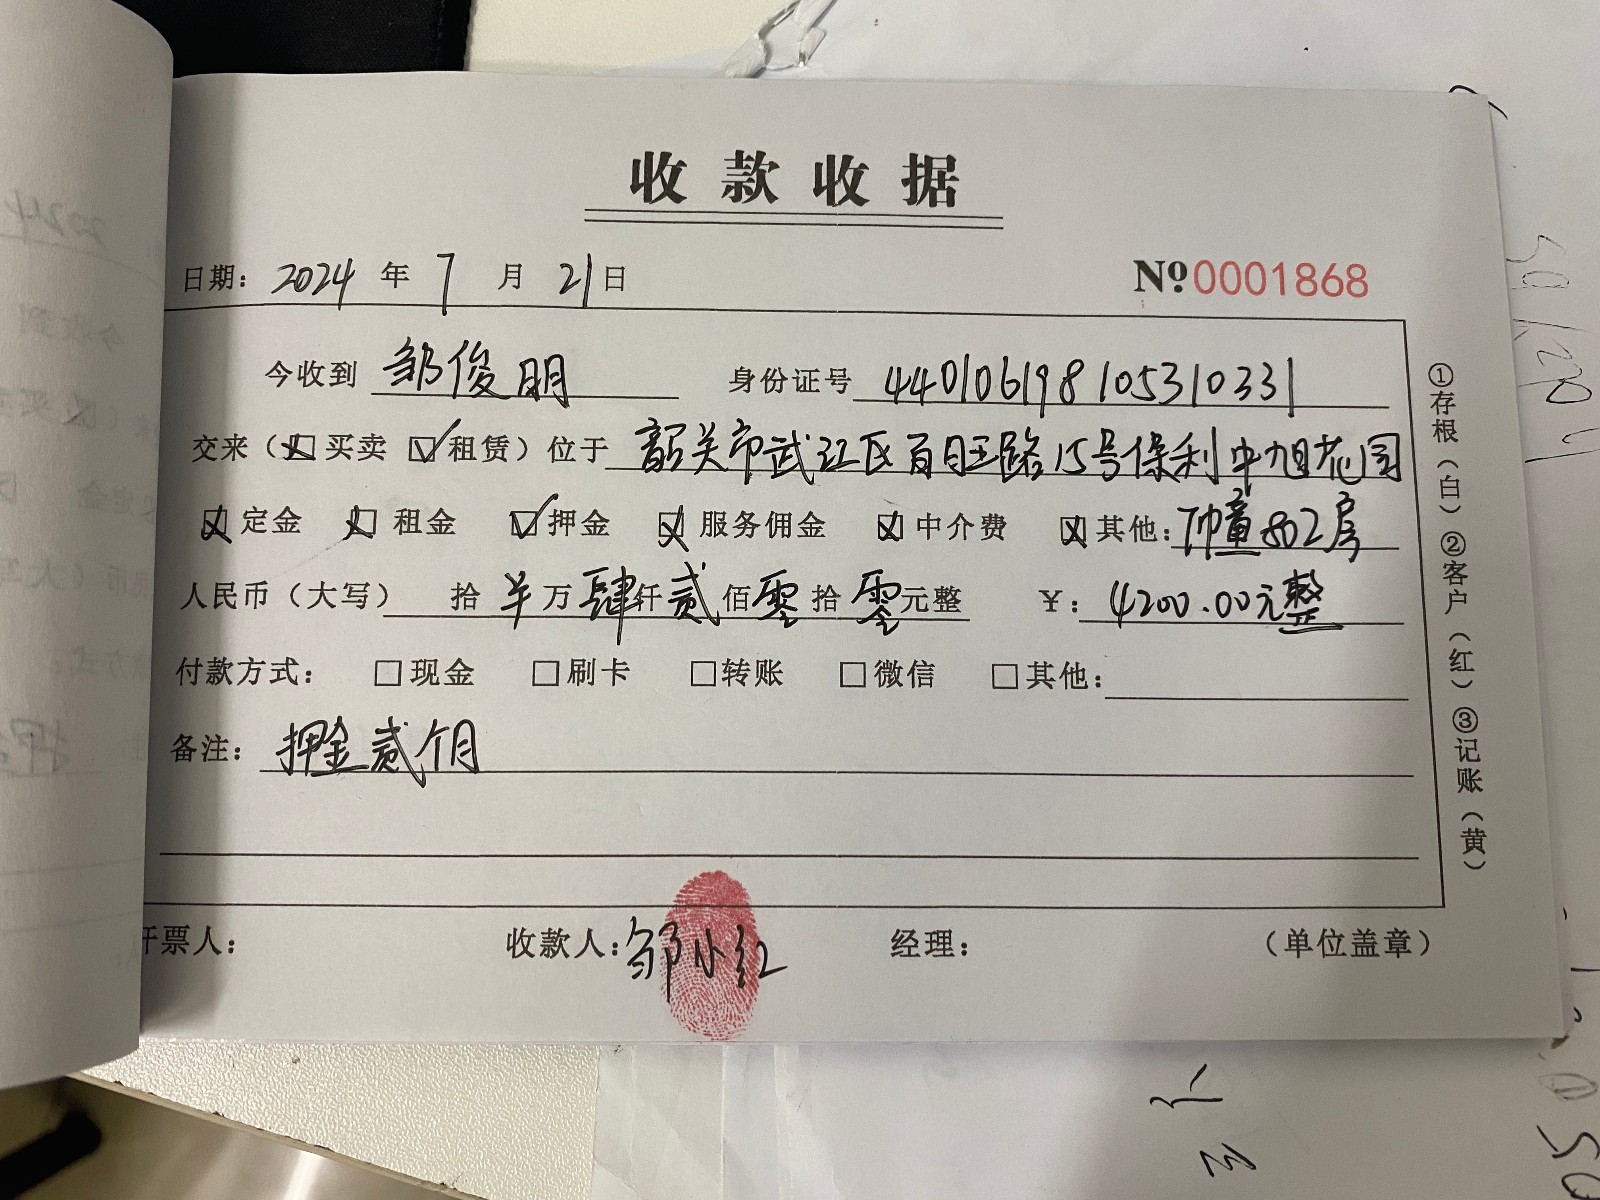 收款收据
日期: 2024 年 7 月 21 日 №0001868
今收到 邹俊明 身份证号 440106198105310331
交来（☒买卖 ☑租赁）位于 韶关市武江区百旺路15号保利中旭花园
☒定金 ☒租金 ☑押金 ☒服务佣金 ☒中介费 ☒其他: 802房
人民币（大写） 拾 ¥ 万 肆 仟 贰 佰 零 拾 零 元整 ¥: 4200.00元整
付款方式: □现金 □刷卡 □转账 □微信 □其他:
备注: 押金贰个月
开票人: 收款人: 邹小红 经理: （单位盖章）
①存根（白）②客户（红）③记账（黄）
2024
今收到